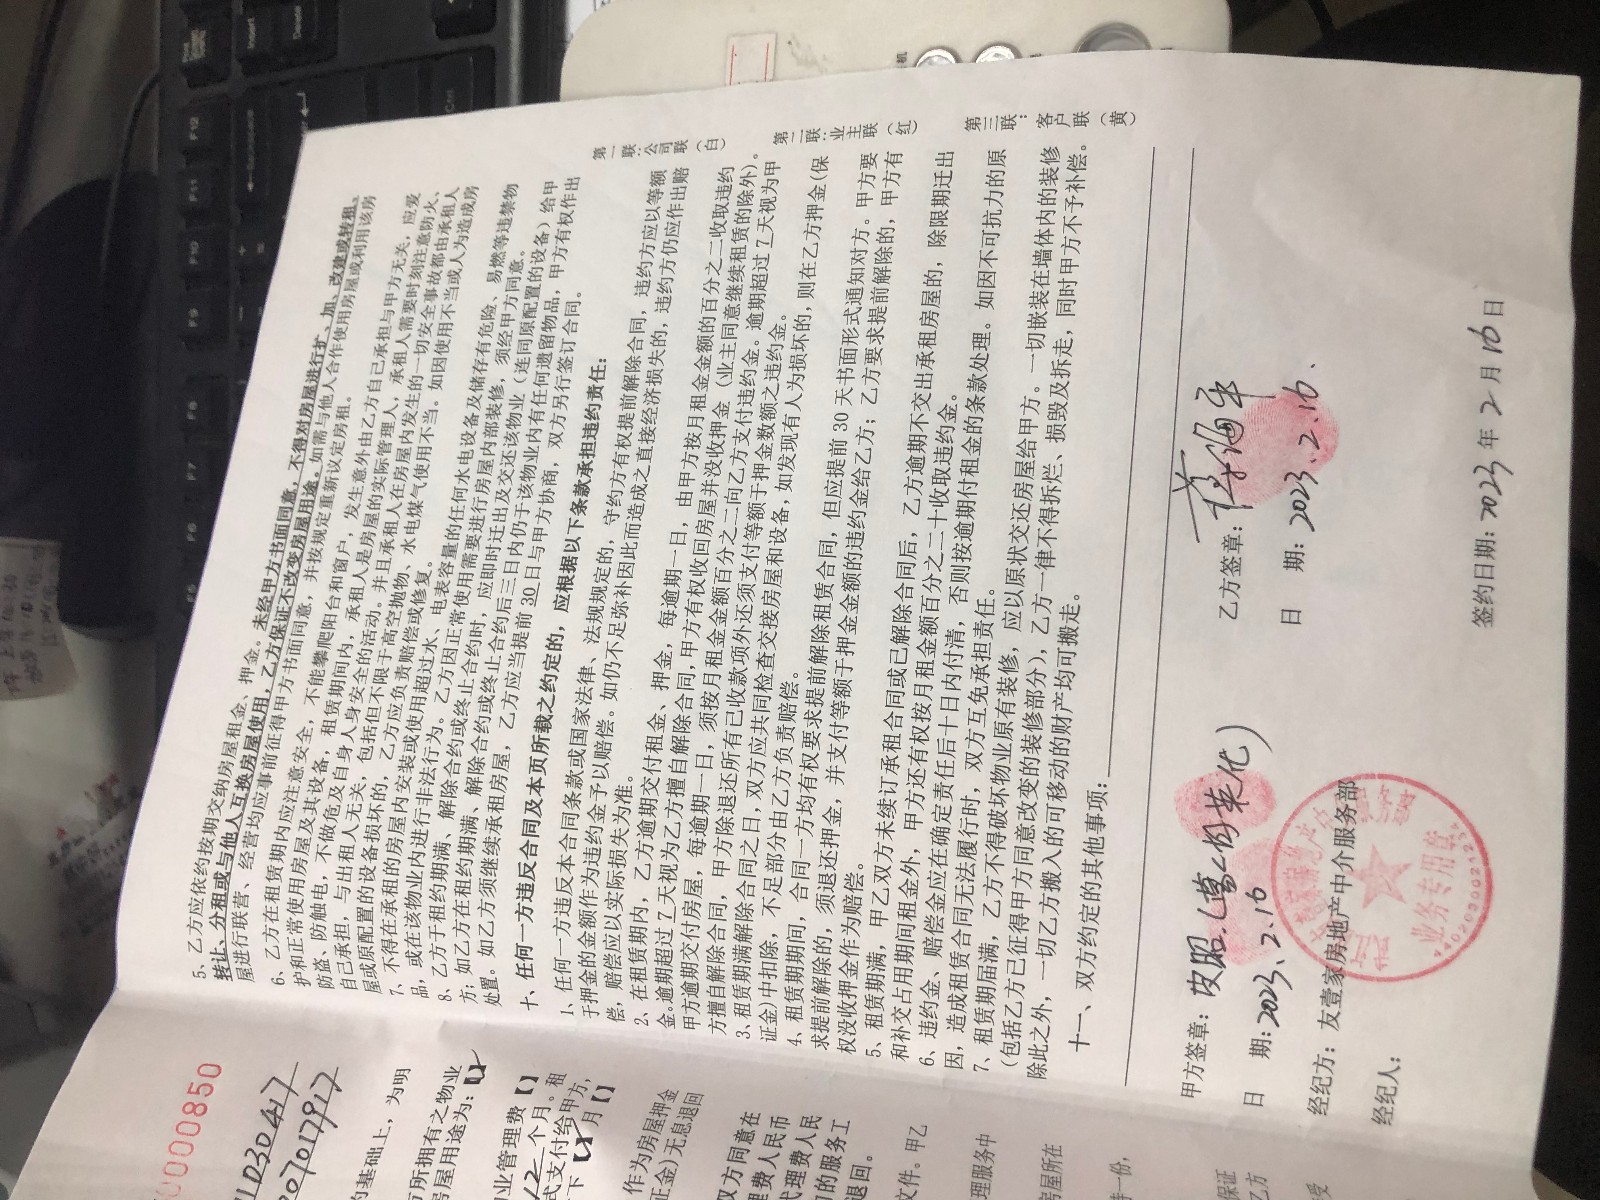 5、乙方应依约按期交纳房屋租金、押金。未经甲方书面同意，不得对房屋进行扩、加、改建或转租、
转让、分租或与他人互换房屋使用，乙方保证不改变房屋用途。如需与他人合作使用房屋或利用该房
屋进行联营、经营均应事前征得甲方书面同意，并按规定重新议定房租。
6、乙方在租赁期内应注意安全，不能攀爬阳台和窗户，发生意外由乙方自己承担与甲方无关，应爱
护和正常使用房屋及其设备，租赁期间内，承租人是房屋的实际管理人，承租人需要时刻注意防火、
防盗、防触电，不做危及自身人身安全的活动。并且承租人在房屋内发生的一切安全事故都由承租人
自己承担，与出租人无关，包括但不限于高空抛物、水电煤气使用不当。如因使用不当或人为造成房
屋或原配置的设备损坏的，乙方应负责赔偿或修复。
7、不得在承租的房屋内安装或使用超过水、电表容量的任何水电设备及储存有危险、易燃等违禁物
品，或在该物业内进行非法行为。乙方因正常使用需要进行房屋内部装修，须经甲方同意。
8、乙方于租约期满、解除合约或终止合约时，应即时迁出及交还该物业（连同原配置的设备）给甲
方；如乙方在租约期满、解除合约或终止合约后三日内仍于该物业内有任何遗留物品，甲方有权作出
处置。如乙方须继续承租房屋，乙方应当提前 30 日与甲方协商，双方另行签订合同。
十、任何一方违反合同及本页所载之约定的，应根据以下条款承担违约责任：
1、任何一方违反本合同条款或国家法律、法规规定的，守约方有权提前解除合同，违约方应以等额
于押金的金额作为违约金予以赔偿。如仍不足弥补因此而造成之直接经济损失的，违约方仍应作出赔
偿，赔偿应以实际损失为准。
2、在租赁期内，乙方逾期交付租金、押金，每逾期一日，由甲方按月租金金额的百分之二收取违约
金。逾期超过 7 天视为乙方擅自解除合同，甲方有权收回房屋并没收押金（业主同意继续租赁的除外）。
甲方逾期交付房屋，每逾期一日，须按月租金金额百分之二向乙方支付违约金。逾期超过 7 天视为甲
方擅自解除合同，甲方除退还所有已收款项外还须支付等额于押金数额之违约金。
3、租赁期满解除合同之日，双方应共同检查交接房屋和设备，如发现有人为损坏的，则在乙方押金（保
证金）中扣除，不足部分由乙方负责赔偿。
4、租赁期期间，合同一方均有权要求提前解除租赁合同，但应提前 30 天书面形式通知对方。甲方要
求提前解除的，须退还押金，并支付等额于押金金额的违约金给乙方；乙方要求提前解除的，甲方有
权没收押金作为赔偿。
5、租赁期满，甲乙双方未续订承租合同或已解除合同后，乙方逾期不交出承租房屋的，除限期迁出
和补交占用期间租金外，甲方还有权按月租金额百分之二十收取违约金。
6、违约金、赔偿金应在确定责任后十日内付清，否则按逾期付租金的条款处理。如因不可抗力的原
因，造成租赁合同无法履行时，双方互免承担责任。
7、租赁期届满，乙方不得破坏物业原有装修，应以原状交还房屋给甲方。一切嵌装在墙体内的装修
（包括乙方已征得甲方同意改变的装修部分），乙方一律不得拆烂、损毁及拆走，同时甲方不予补偿。
除此之外，一切乙方搬入的可移动的财产均可搬走。
十一、双方约定的其他事项：
第一联：公司联（白）
第二联：业主联（红）
第三联：客户联（黄）
甲方签章：
乙方签章：
日 期：2023.2.16
日 期：2023.2.16.
经纪方：友壹家房地产中介服务部
业务专用章
经纪人：
签约日期：2023 年 2 月 16 日
0000850
的基础上，为明
所拥有之物业
房屋用途为：
业管理费【】
12 个月。租
式支付给甲方，
月【】
作为房屋押金
证金）无息退回
双方同意在
理费人民币
代理费人民
的服务工
退回。
文件。甲乙
理服务中
房屋所在
保证
乙方
Insert
Delete
Backspace
F12
F11
F10
F9
F8
F7
F6
F5